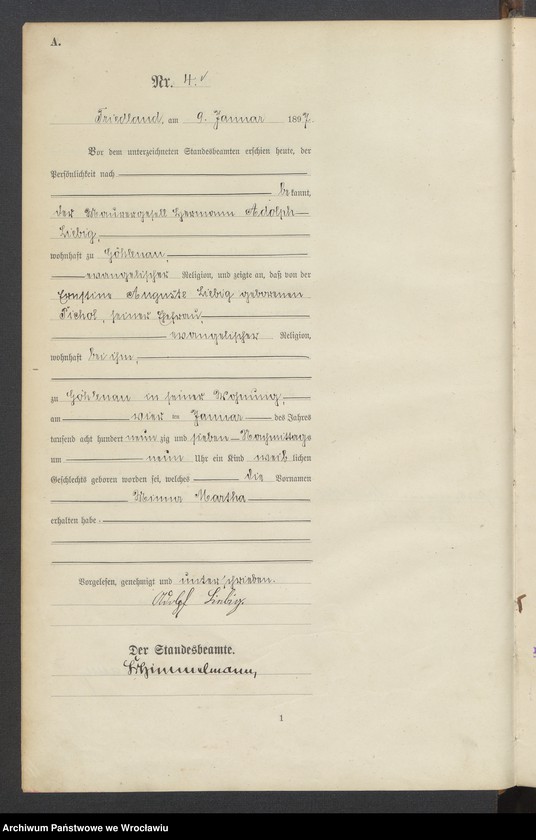 A.
Nr. 4.
Friedland, am 9. Januar 1897.
Vor dem unterzeichneten Standesbeamten erschien heute, der
Persönlichkeit nach
bekannt,
der Maurergesell Hermann Adolph
Liebig,
wohnhaft zu Göhlenau,
evangelischer Religion, und zeigte an, daß von der
Ernstine Auguste Liebig geborenen
Tichol, seiner Ehefrau,
evangelischer Religion,
wohnhaft bei ihm,
zu Göhlenau in seiner Wohnung,
am vier = Januar des Jahres
tausend acht hundert neunzig und sieben Nachmittags
um neun Uhr ein Kind weiblichen
Geschlechts geboren worden sei, welches die Vornamen
Minna Martha
erhalten habe.
Vorgelesen, genehmigt und unterschrieben.
Adolf Liebig.
Der Standesbeamte.
Himmelmann,
1
Archiwum Państwowe we Wrocławiu